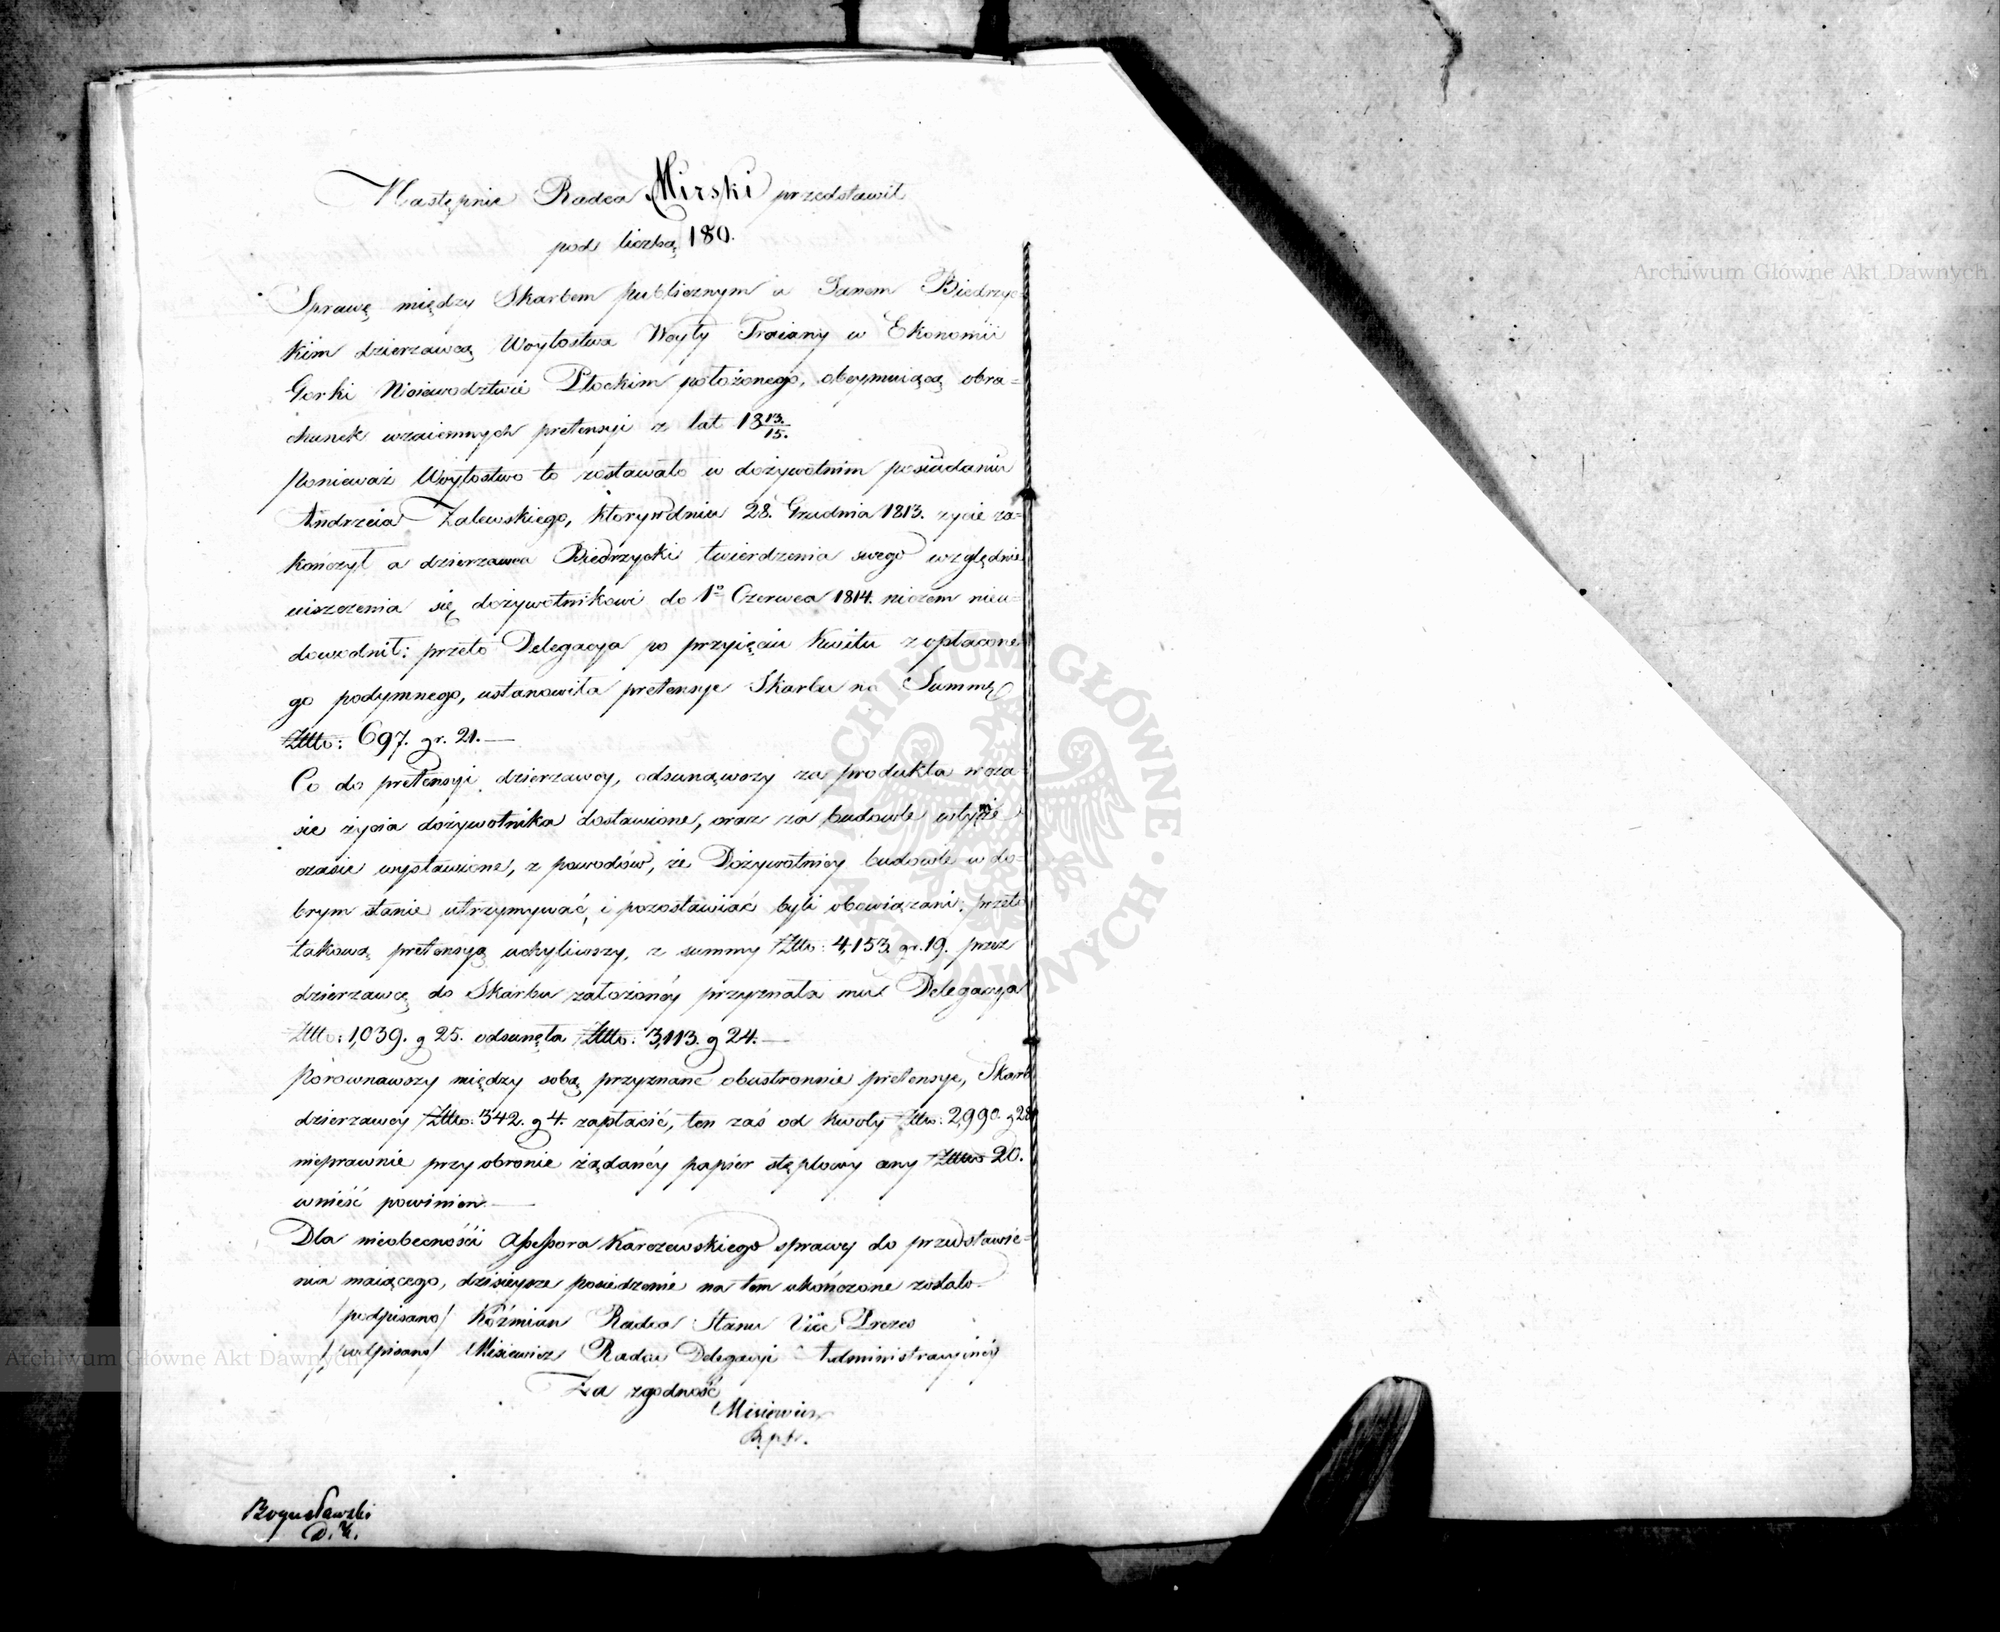 Następnie Radca Mirski przedstawił
pod liczbą 180.
Sprawę między Skarbem publicznym a Janem Biedrzyc-
kim dzierzawcą Woytostwa Woyty Troiany w Ekonomii
Gorki Woiewodztwie Płockim położonego, obeymuiącą obra=
chunek wzaiemnych pretensyi z lat 18 13/15.
Ponieważ Woytostwo to zostawało w dożywotnim posiadaniu
Andrzeia Zalewskiego, który w dniu 28. Grudnia 1813. życie za=
kończył a dzierzawca Biedrzycki twierdzenia swego względnie
uiszczenia się dożywotnikowi do 1o Czerwca 1814. niczem nieu=
dowodnił: przeto Delegacya po przyięciu kwitu z opłacone
go podymnego, ustanowiła pretensye Skarbu na Summę
Złtt: 697. gr. 21.—
Co do pretensyi dzierzawcy, odsunąwszy za produkta w cza=
sie życia dożywotnika dostawione, oraz za budowle w tymże
czasie wystawione, z powodów, że Dożywotnicy budowle w do=
brym stanie utrzymywać, i pozostawiać byli obowiązani, przeto
takową pretensyą uchyliwszy, z summy Złtt: 4,153. gr. 19. przez
dzierzawcę do Skarbu założonéy przyznała mu Delegacya
Złtt: 1,039. g 25. odsunęła Złtt: 3,113. g 24.—
Porównawszy między sobą przyznane obustronnie pretensye, Skarb
dzierzawcy Złtt: 342. g 4. zapłacić, ten zaś od kwoty Złtt: 2,990. g 28
nieprawnie przy obronie żądanéy papier stęplowy ceny Złtt 20.
wnieść powinien.—
Dla nieobecności Assessora Karczewskiego sprawy do przedstawie=
nia maiącego, dzisieysze posiedzenie na tem ukończone zostało
/podpisano/ Koźmian Radca Stanu Vice Prezes
/podpisano/ Misiewicz Radca Delegacyi Administracyinéy
Za zgodność
Misiewicz
Bogusławski
Archiwum Główne Akt Dawnych
Archiwum Główne Akt Dawnych
ARCHIWUM GŁÓWNE AKT DAWNYCH